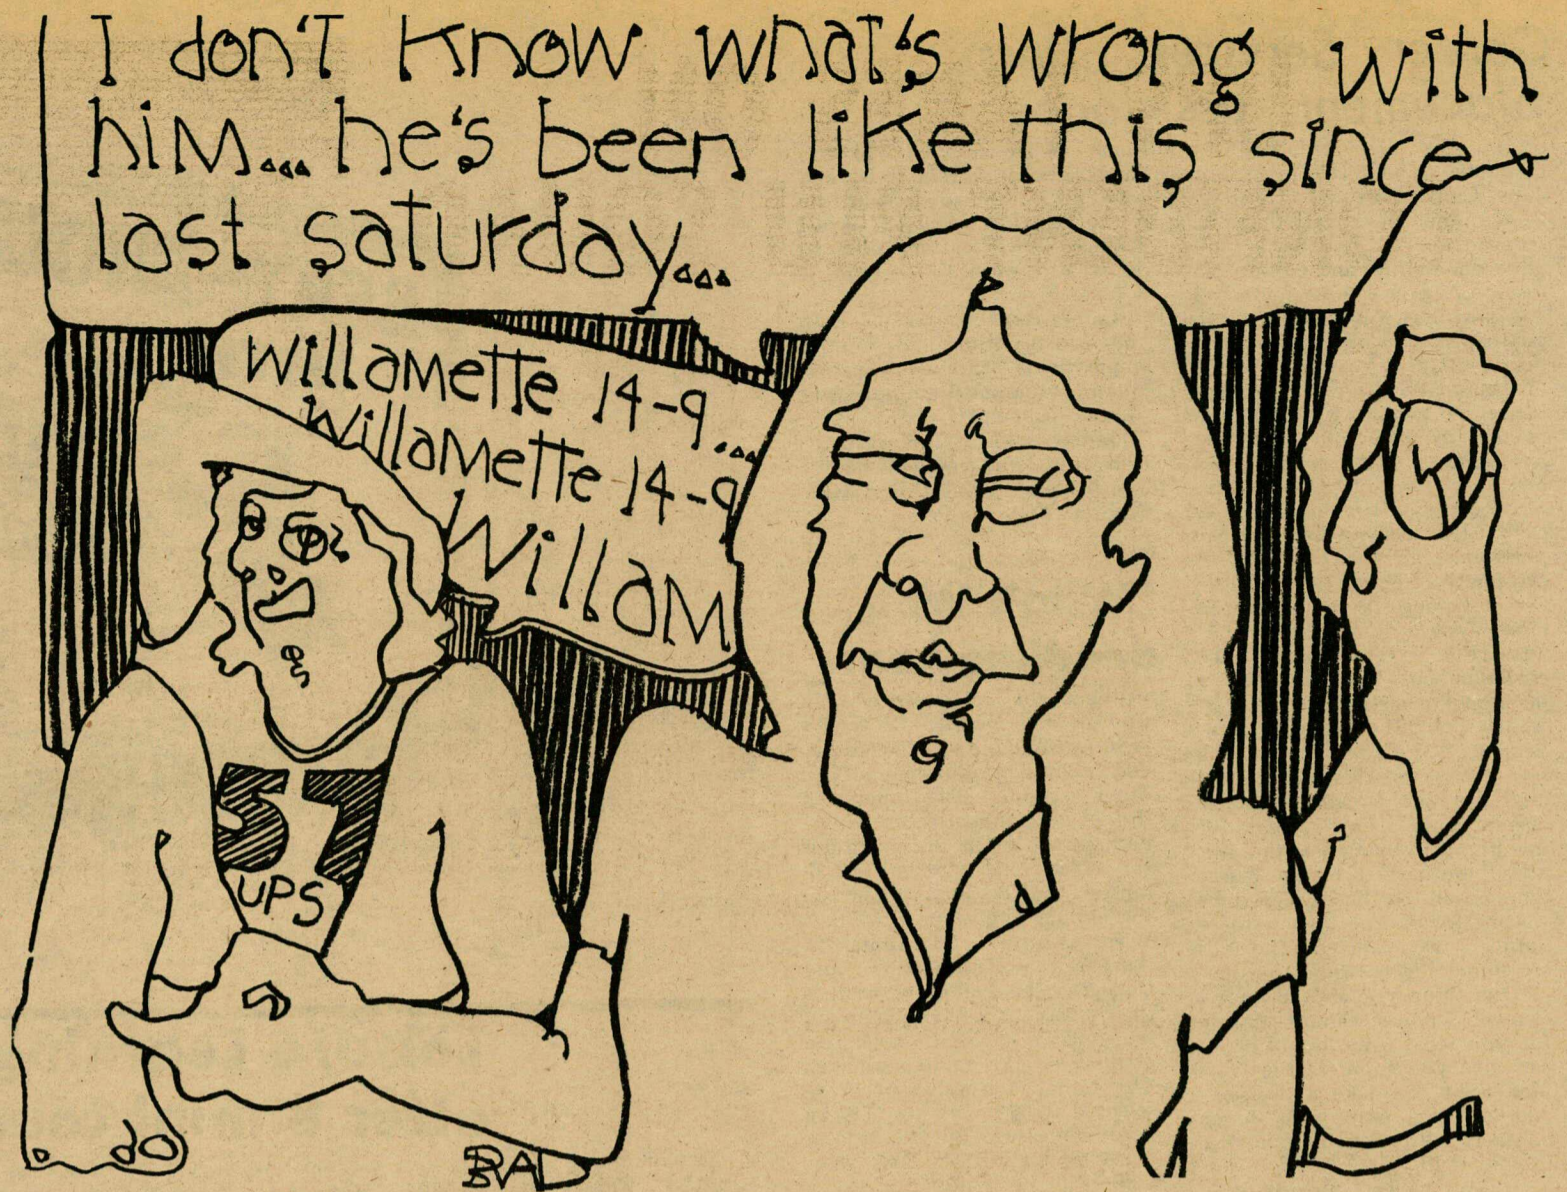 I don't know what's wrong with
him... he's been like this since
last saturday...
Willamette 14-9...
Willamette 14-9
Willam
57
UPS
BRAD